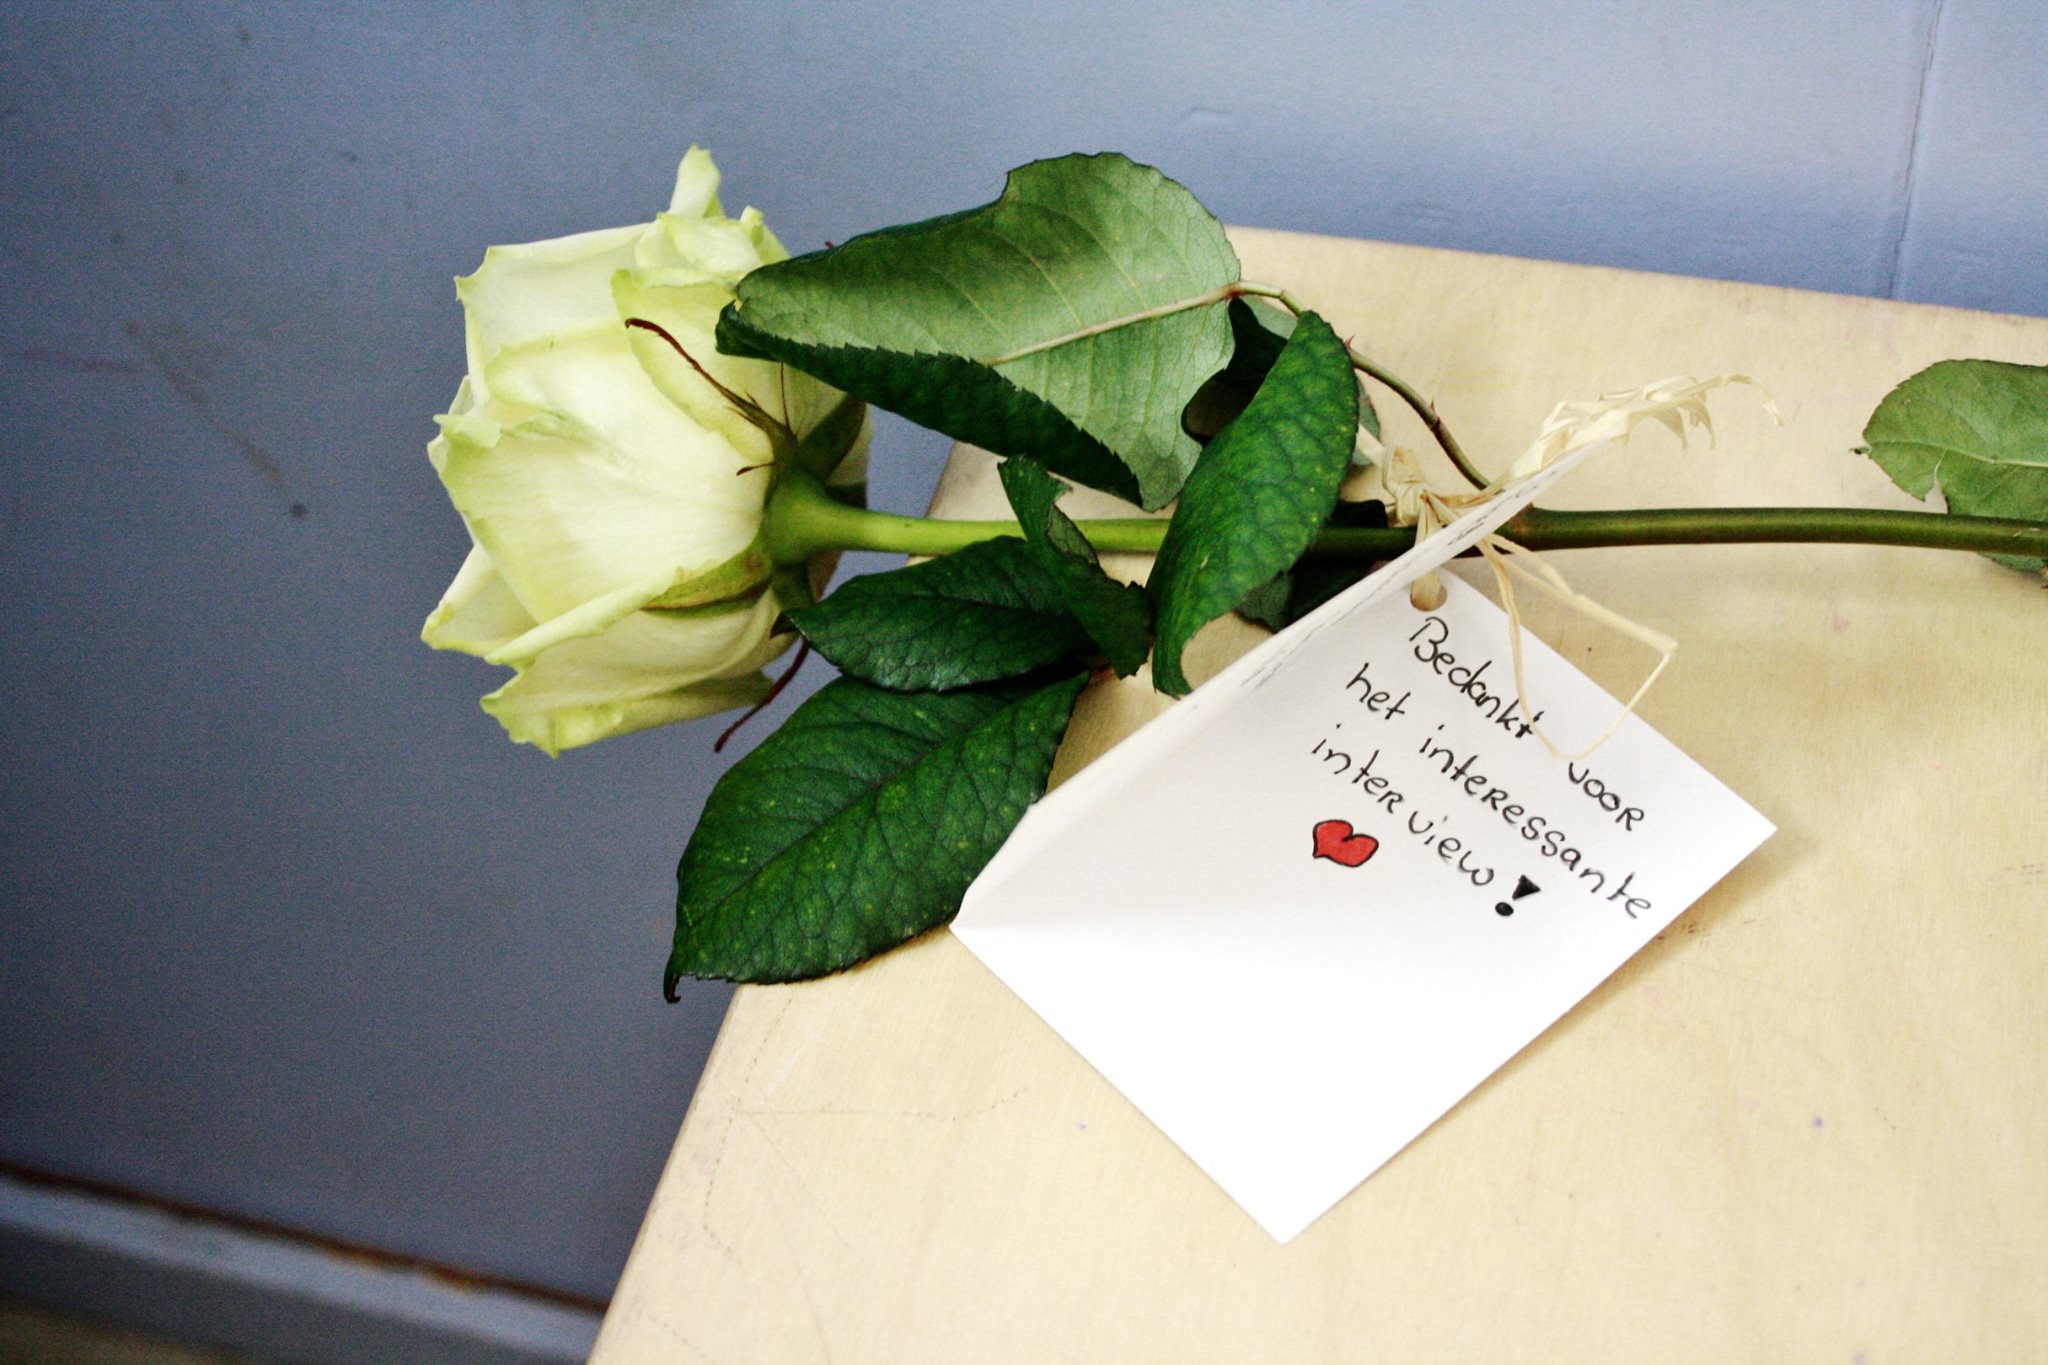 Bedankt voor
het interessante
interview!